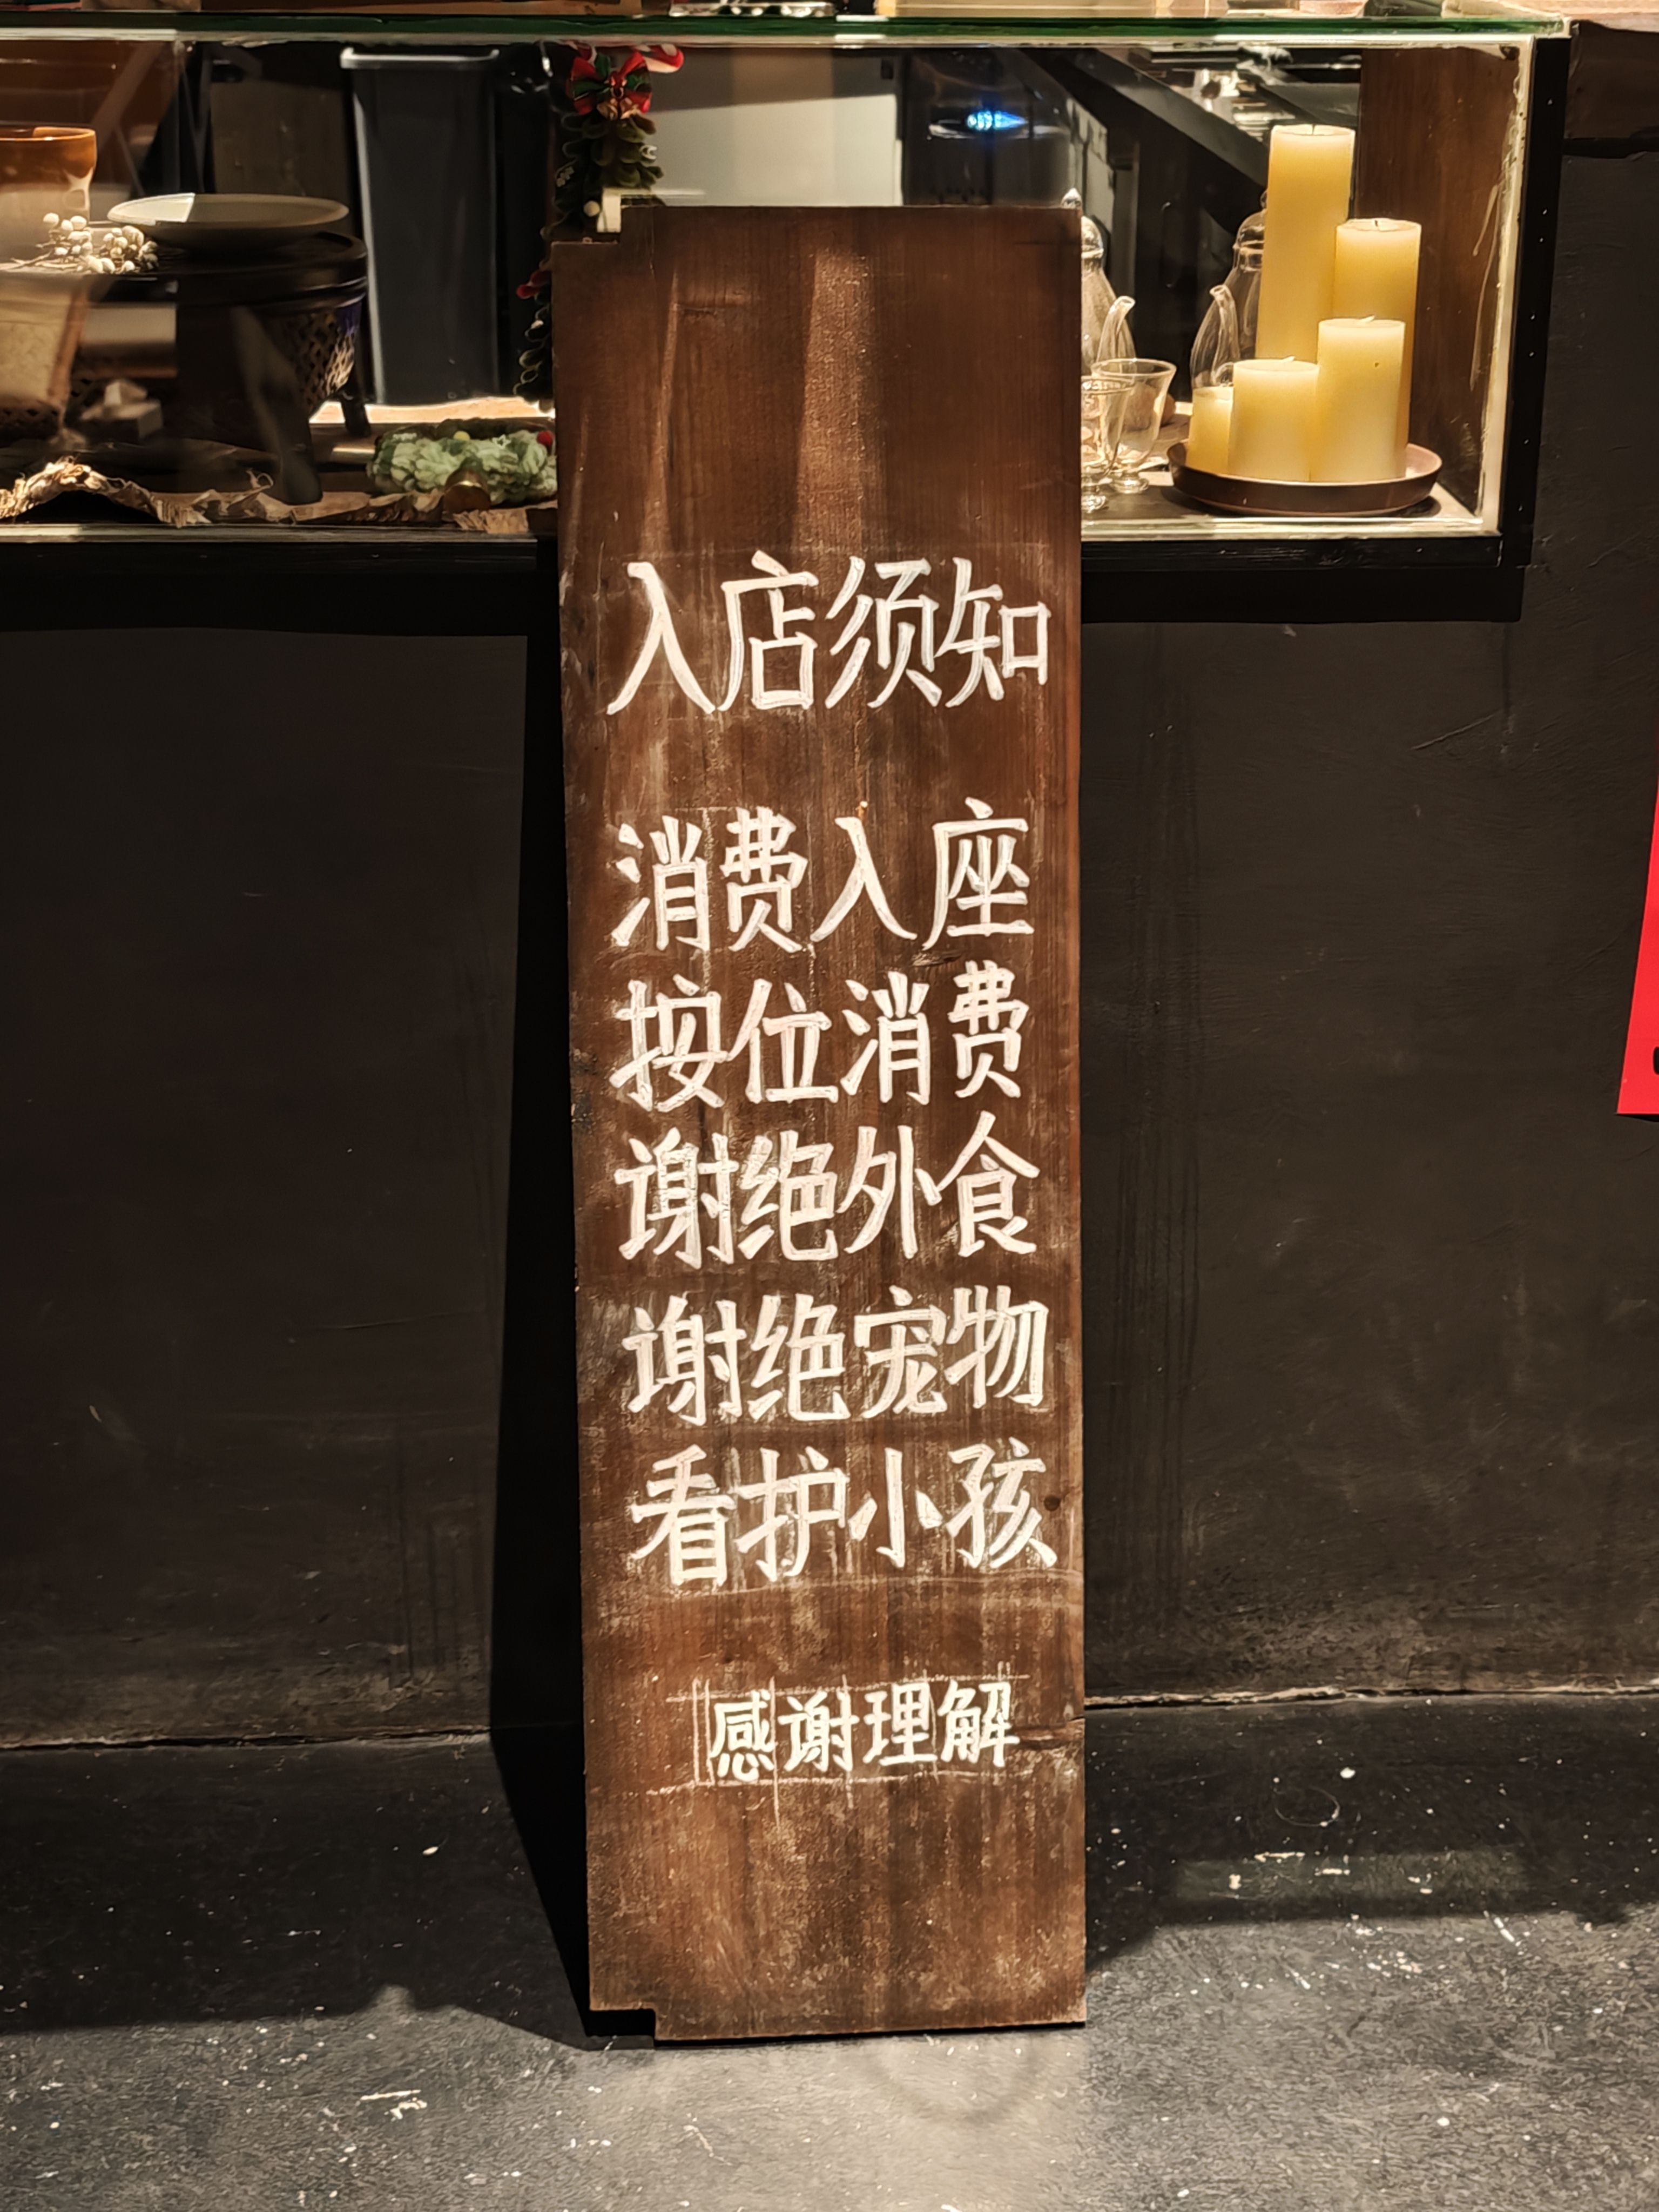 入店须知
消费入座
按位消费
谢绝外食
谢绝宠物
看护小孩
感谢理解